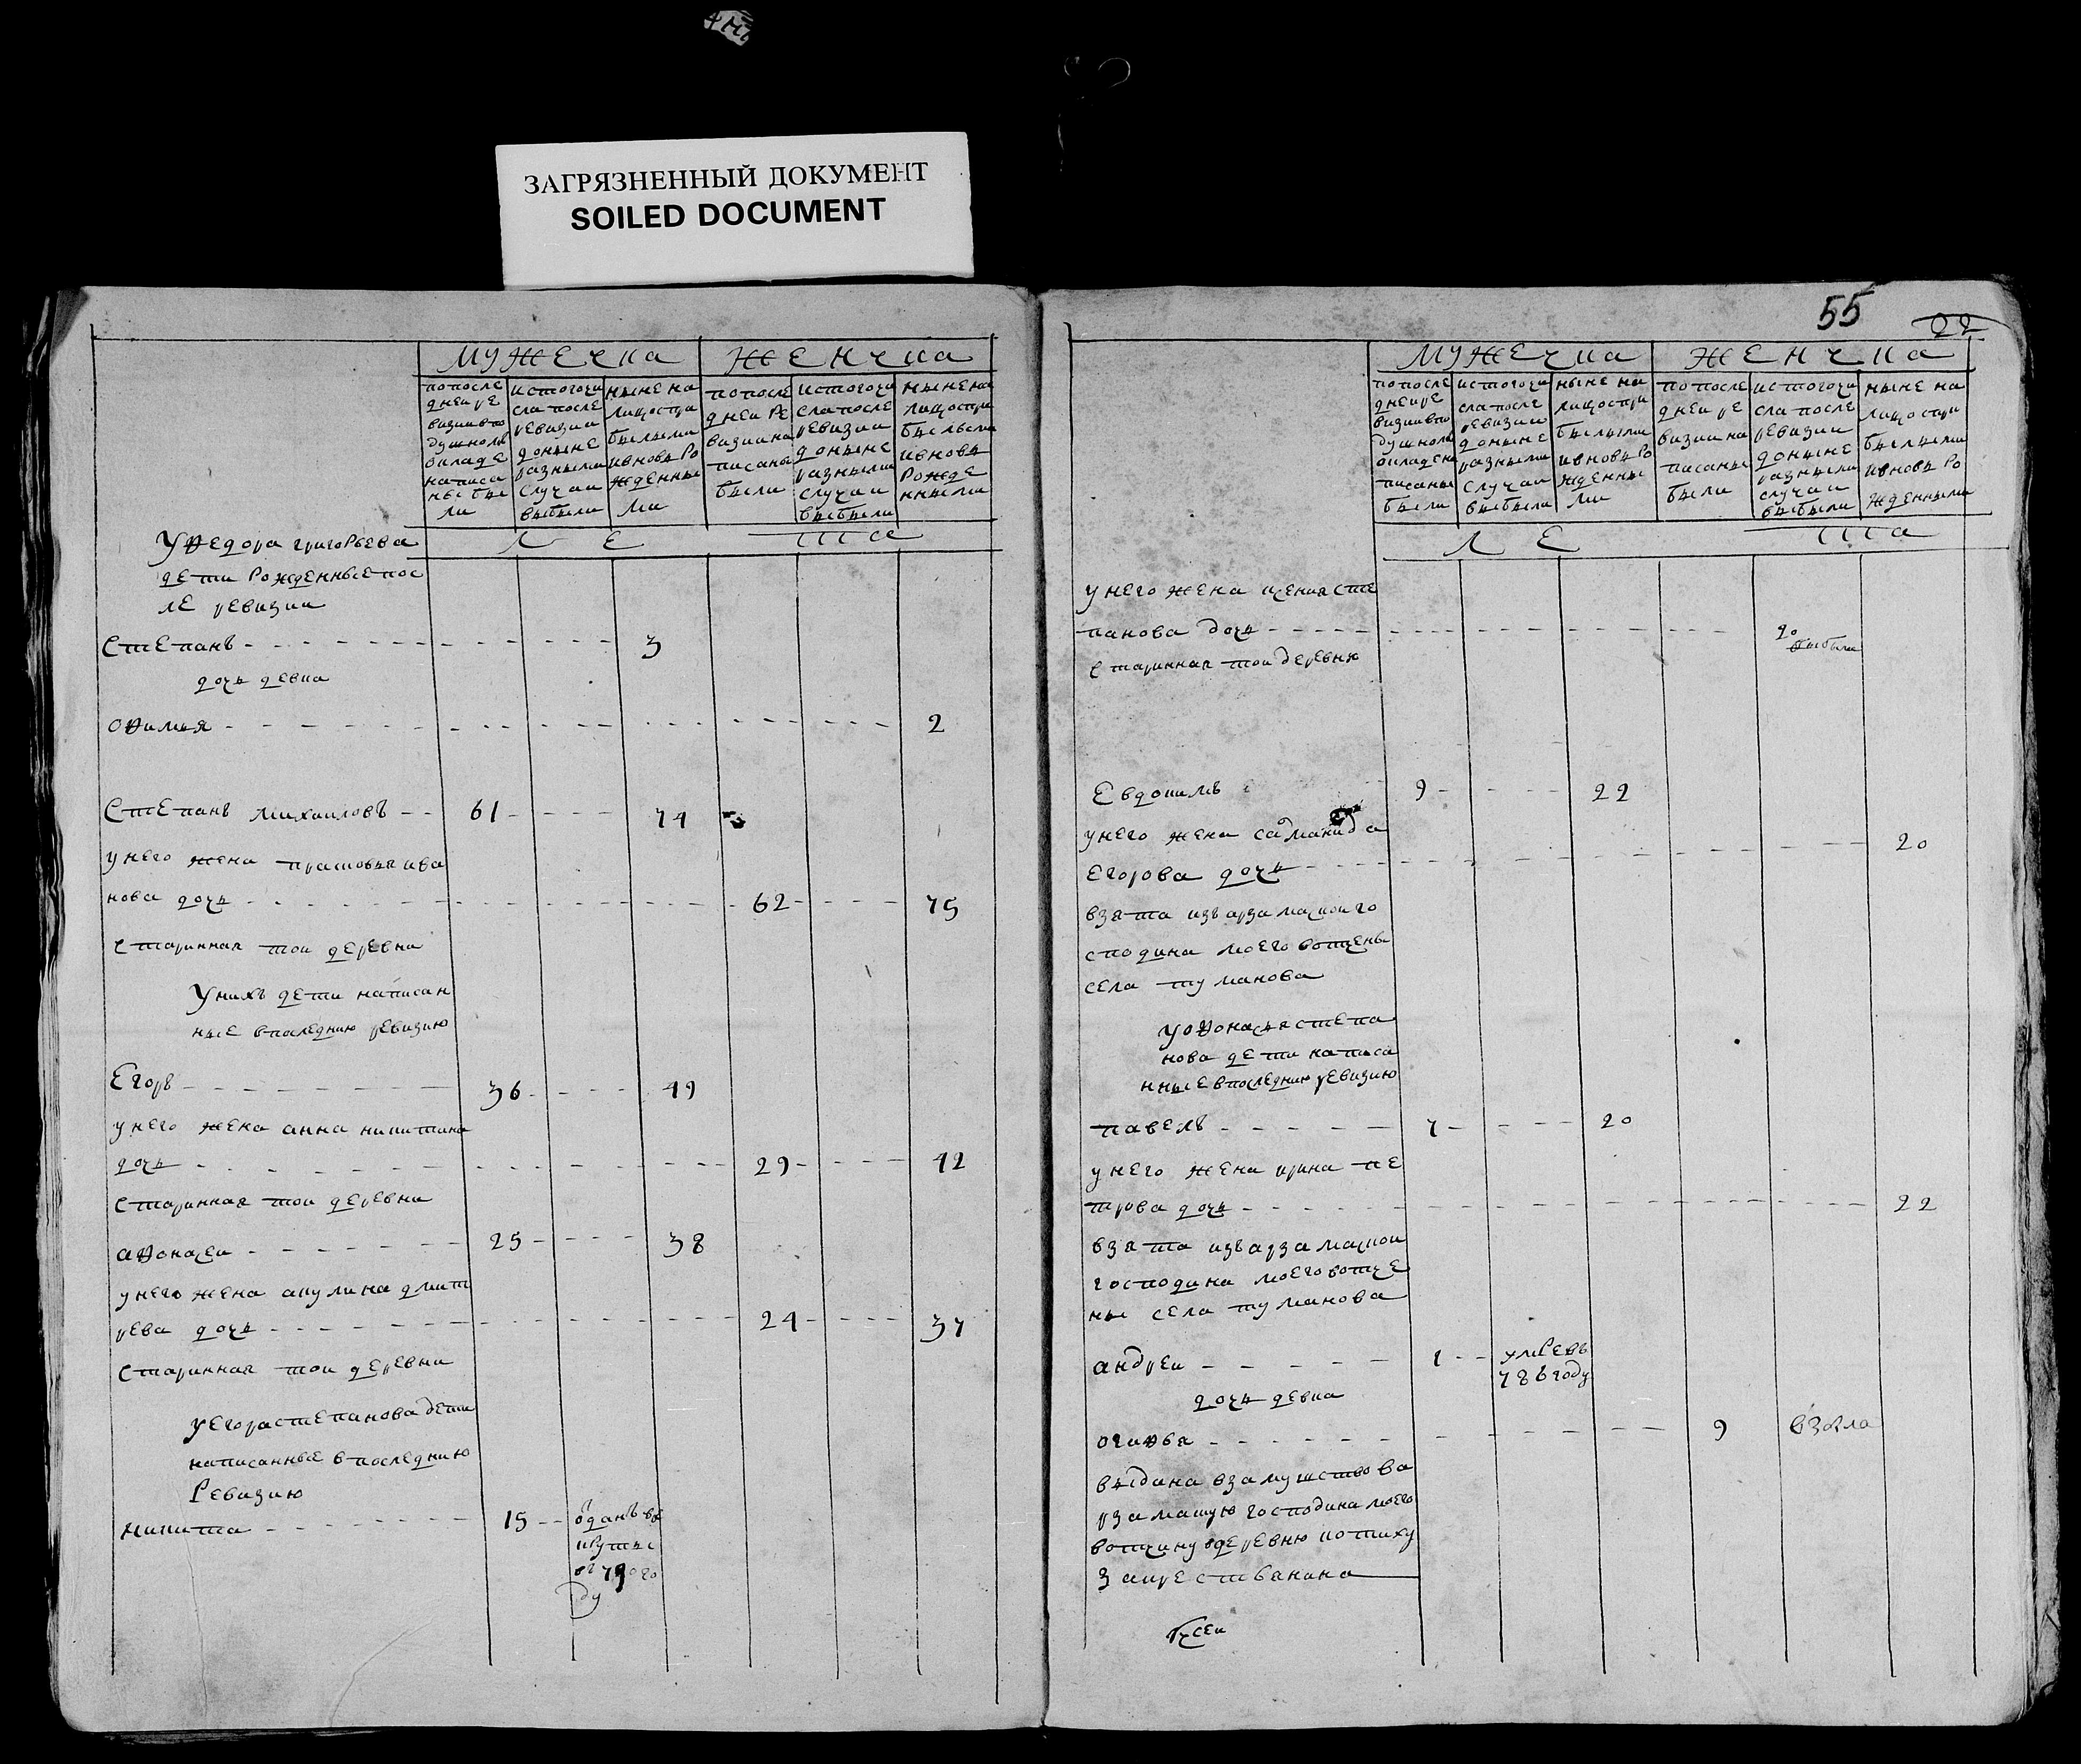 ЗАГРЯЗНЕННЫЙ ДОКУМЕНТ
SOILED DOCUMENT
мужеска
женска
по после
дней ре
визии въ по
душномъ
окладе
написа
ные бы
ли
ис того чи
сла после
ревизии
доныне
разными
случаи
выбыли
ныне на
лицо с при
былыми
и вновь ро
жденны
ми
по после
дней ре
визии на
писаны
были
ис того чи
сла после
ревизии
доныне
разными
случаи
выбыли
ныне на
лицо с при
былыми
и вновь
рожде
нными
Ле
та
У ѳедора григорьева
дети рожденные пос
ле ревизии
Степанъ 3
дочь девка
оѳимья 2
Степанъ михаиловъ 61 74
у него жена прасковья ива
нова дочь 62 75
старинная тои деревни
У нихъ дети написан
ные в последнюю ревизию
Егоръ 36 49
у него жена анна никитина
дочь 29 42
старинная тои деревни
аѳонасеи 25 38
у него жена акулина дмит
рева дочь 24 37
старинная тои деревни
у егора степанова дети
написанные в последнюю
Ревизию
никита 15 оданъ в ре
круты
790 го
ду
55
22
мужеска
женска
по после
дней ре
визии въ по
душномъ
окладе на
писаны
были
ис того чи
сла после
ревизии
доныне
разными
случаи
выбыли
ныне на
лицо с при
былыми
и вновь ро
жденны
ми
по после
дней ре
визии на
писаны
были
ис того чи
сла после
ревизии
доныне
разными
случаи
выбыли
ныне на
лицо с при
былыми
и вновь ро
жденными
Ле
та
у него жена ксения сте
панова дочь 20
выбыла
старинная тои деревни
Евдокимъ 9 22
у него жена
егорова дочь 20
взята изъ арзамаской го
сподина моего вотчены
села туманова
у аѳонасья степа
нова дети написа
нные в последнюю ревизию
павелъ 7 20
у него жена ирина пе
трова дочь 22
взята изъ арзамаской
господина моего вотче
ны села туманова
андреи 1 умре въ
786 году
дочь девка
огаѳья 9
выдана в замужство в а
рзамаскую господина моего
вотчину в деревню потиху
за крестьянина